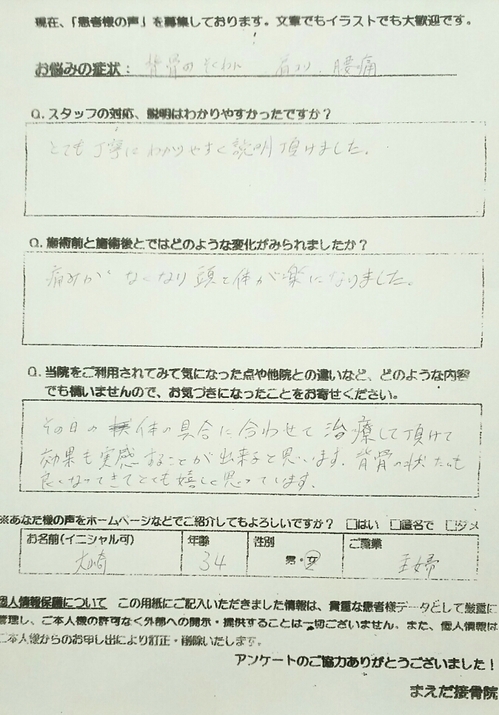 現在、「患者様の声」を募集しております。文章でもイラストでも大歓迎です。
お悩みの症状： 背骨の 肩こり、腰痛
Q. スタッフの対応、説明はわかりやすかったですか？
とても丁寧にわかりやすく説明頂けました。
Q. 施術前と施術後とではどのような変化がみられましたか？
痛みがなくなり頭と体が楽になりました。
Q. 当院をご利用されてみて気になった点や他院との違いなど、どのような内容
でも構いませんので、お気づきになったことをお寄せください。
その日の体の具合に合わせて治療して頂けて
効果も実感することが出来ると思います。背骨の状たいも
良くなってきてとても嬉しく思っています。
※あなた様の声をホームページなどでご紹介してもよろしいですか？ □はい □匿名で □ダメ
お名前(イニシャル可) 年齢 性別 ご職業
大崎 34 男・女 主婦
個人情報保護について この用紙にご記入いただきました情報は、貴重な患者様データとして厳重に
管理し、ご本人様の許可なく外部への開示・提供することは一切ございません。また、個人情報は
ご本人様からのお申し出により訂正・削除いたします。
アンケートのご協力ありがとうございました！
まえだ接骨院